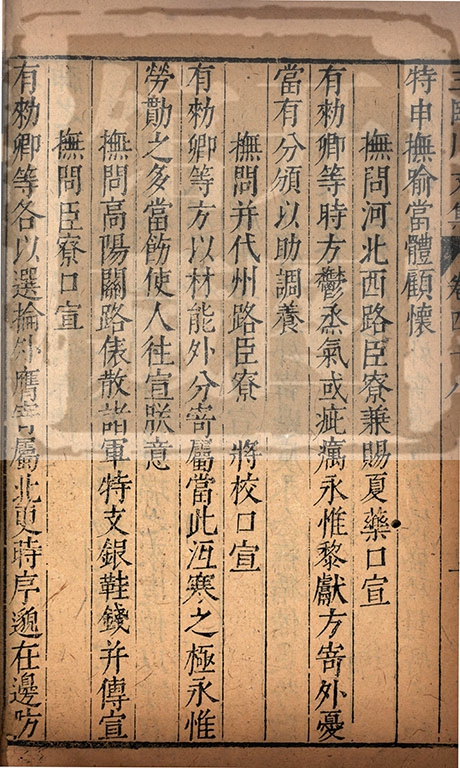 王臨川文集 卷四十八
特申撫喻當體顧懷
撫問河北西路臣寮兼賜夏藥口宣
有勑卿等時方鬱烝氣或疵癘永惟黎獻方寄外憂
當有分頒以助調養
撫問并代州路臣寮 將校口宣
有勑卿等方以材能外分寄屬當此沍寒之極永惟
勞勩之多當飭使人往宣朕意
撫問高陽關路俵散諸軍特支銀鞋錢并傳宣
撫問臣寮口宣
有勑卿等各以選掄外膺寄屬北更時序邈在邊防